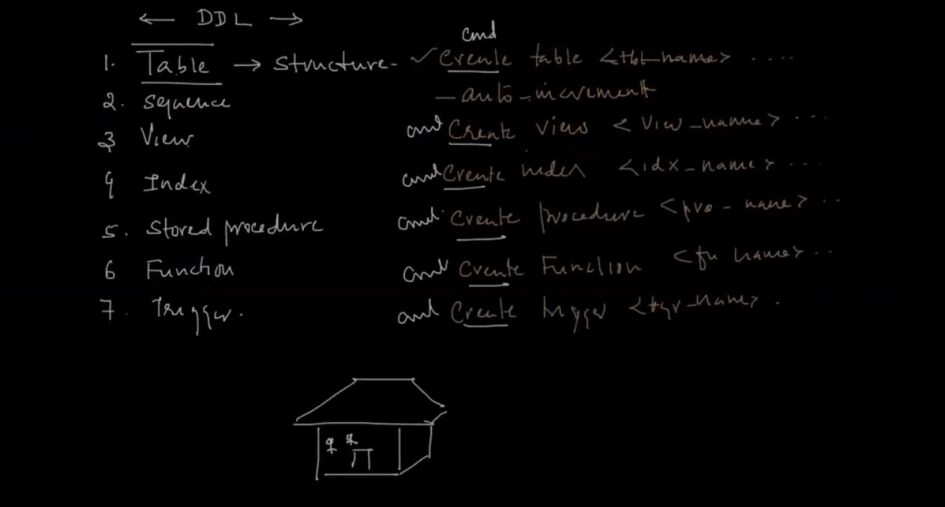 ← DDL →
cmd
1. Table → Structure - ✓ Create table <tbl-name> ....
2. Sequence - auto-increment
3 View cmd Create view <view-name> ...
4 Index cmd Create index <idx-name> ...
5. Stored procedure cmd Create procedure <pro-name> ..
6 Function cmd Create Function <fn name> ..
7. Trigger. cmd Create trigger <tgr-name> .